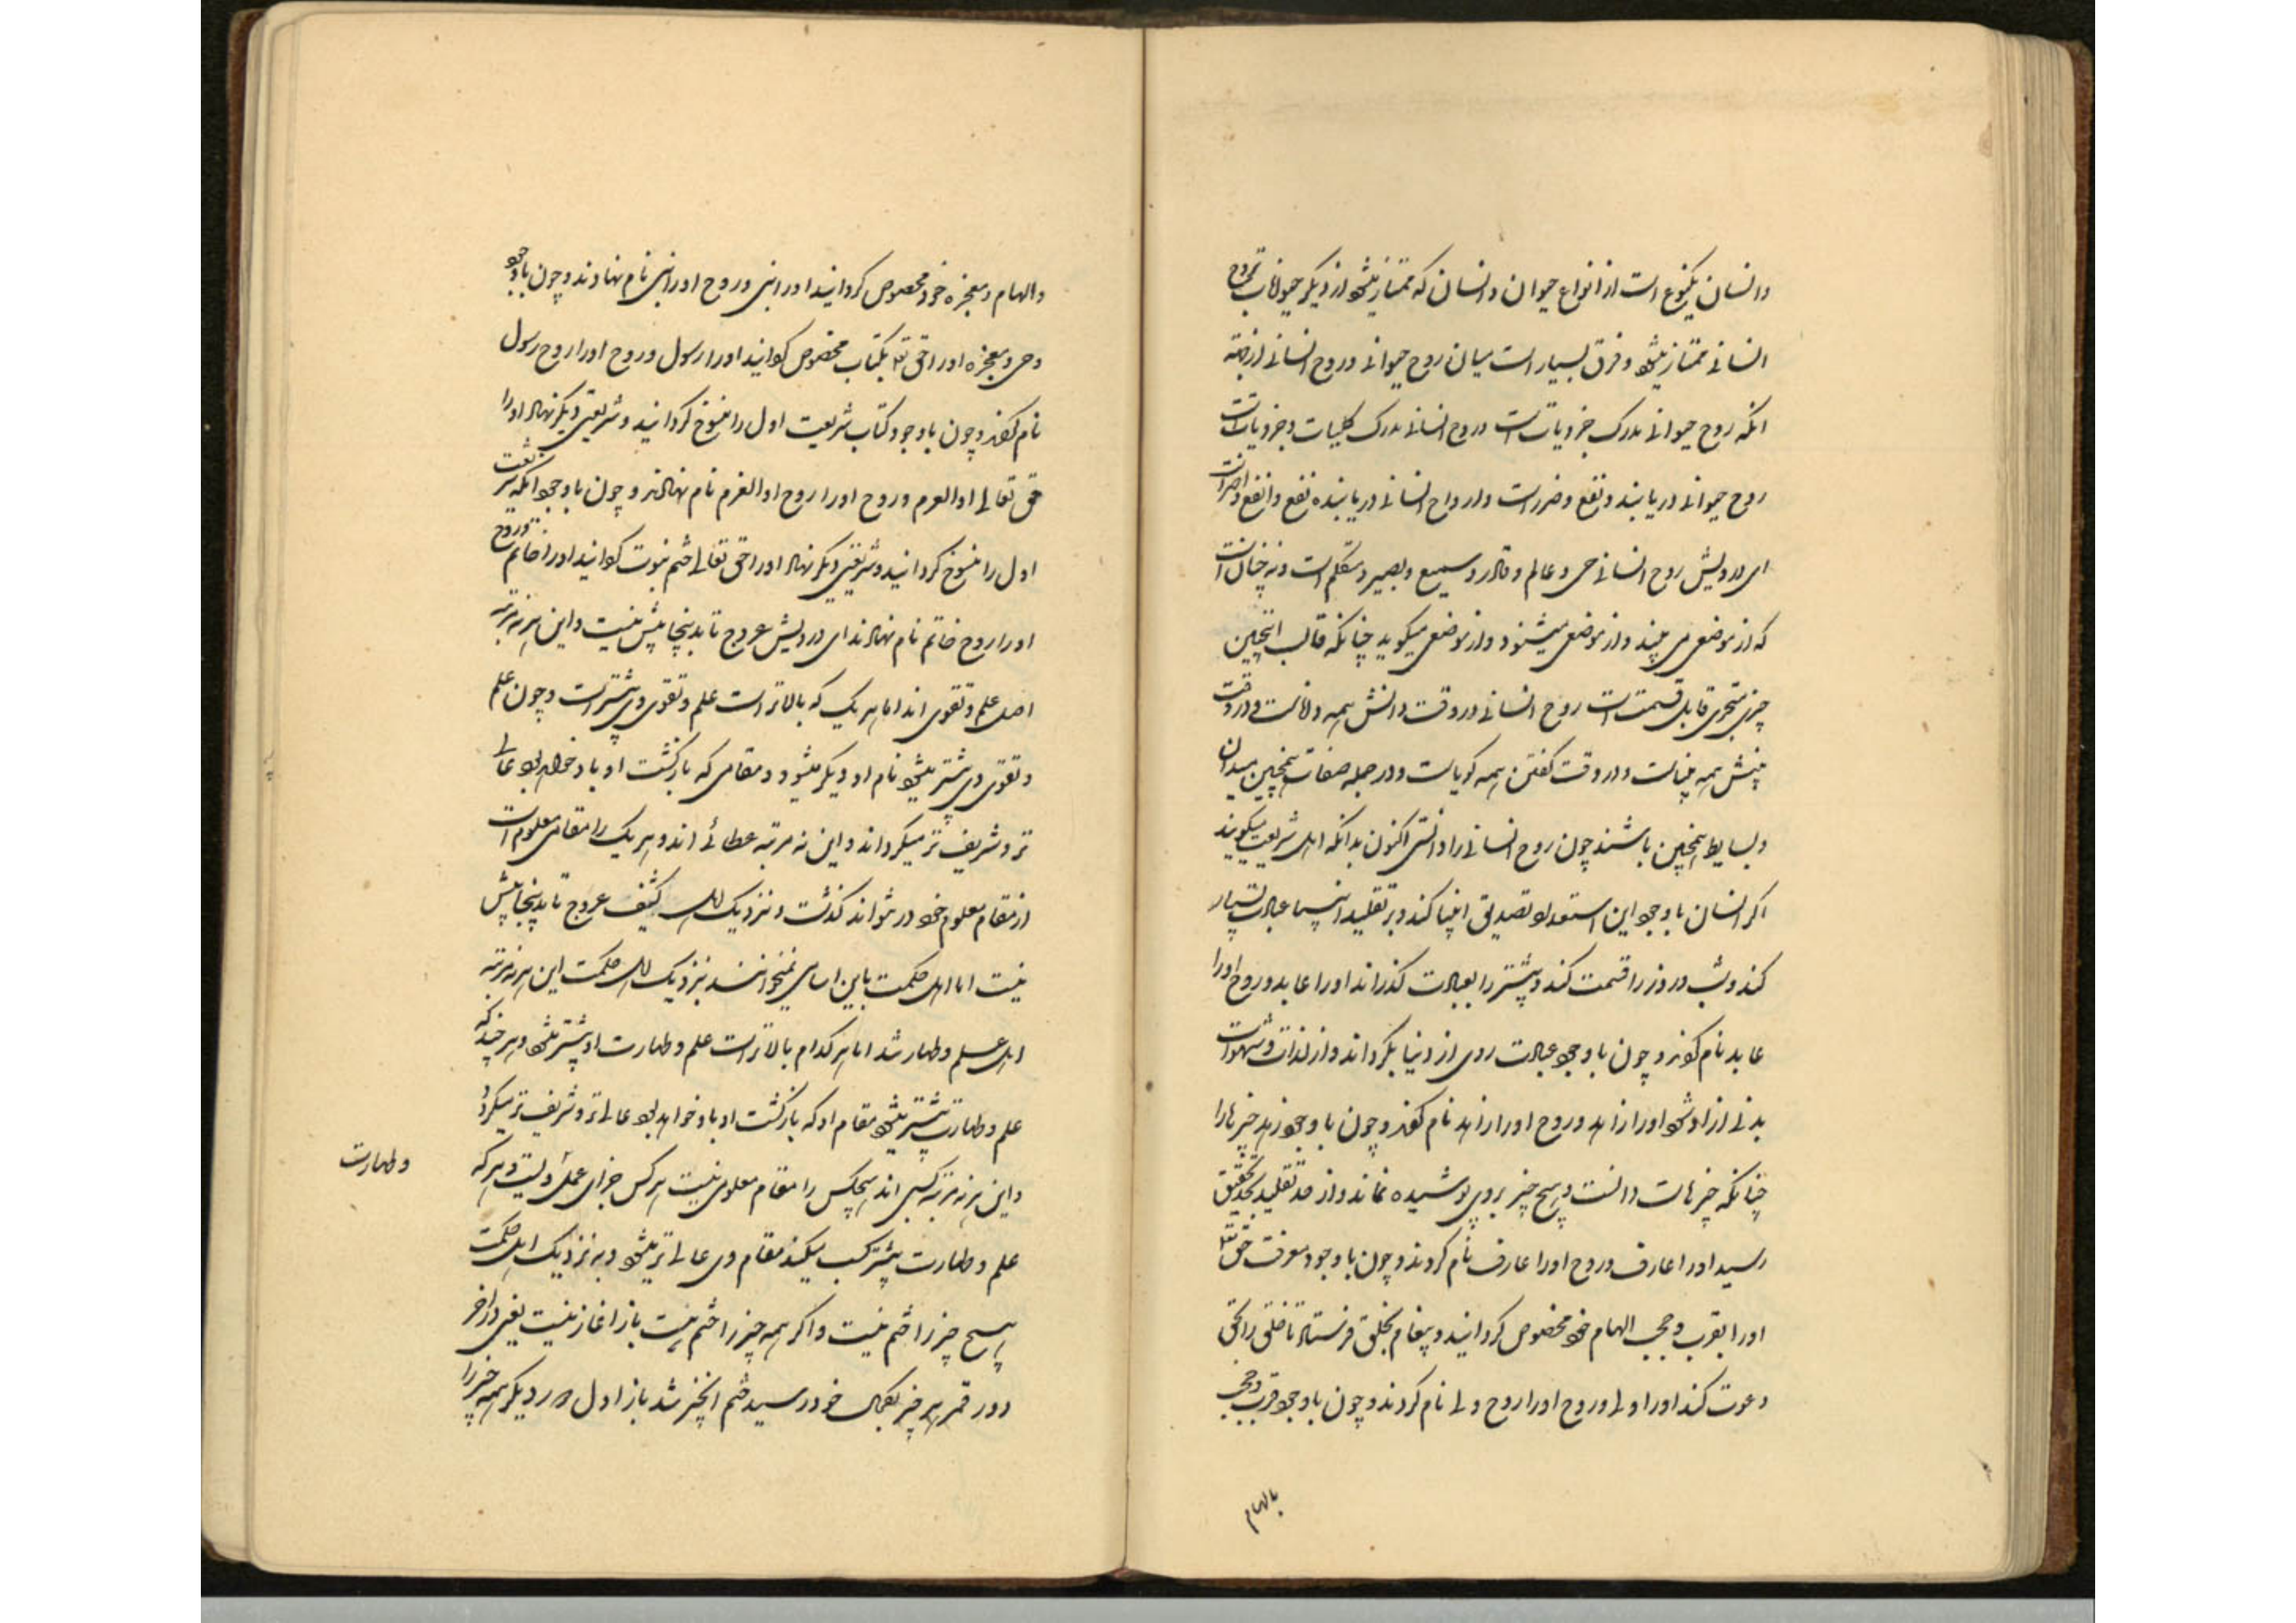 و انسان یکنوع است از انواع حیوان و انسان که ممتاز میشود از دیگر حیوانات بروح
انسانی ممتاز میشود و فرق بسیار است میان روح حیوانی و روح انسانی از جمله
انکه روح حیوانی مدرک جزویاتست و روح انسانی مدرک کلیات و جزویاتست
روح حیوانی دریابنده نفع و ضرر است و ارواح انسانی دریابنده نفع و انفع و اضر است
ای درویش روح انسانی حی و عالم و قادر و سمیع و بصیر و متکلم است و نه چنان است
که از موضعی می بیند و از موضعی میشنود و از موضعی میکوید چنانکه قالب اینچنین
چیزی متجزی قابل قسمت است روح انسانی در وقت دانش همه داناست و در وقت
بینش همه بیناست و در وقت کفتن همه کویاست و در جمله صفات همچنین میدان
و بسایط همچنین باشند چون روح انسانی را دانستی اکنون بدانکه اهل شریعت میکویند
اکر انسان باوجود این استعداد تصدیق انبیا کند و بر تقلید انبیا عبادت بسیار
کند و شب و روز را قسمت کند و بیشتر را بعبادت کذراند اورا عابد و روح اورا
عابد نام کویند و چون باوجود عبادت روی از دنیا بکرداند و از لذات و شهوات
بدنی ازاد شود اورا زاهد و روح اورا زاهد نام کفتند و چون باوجود زهد چیزها را
چنانکه چیزهاست دانست و هیچ چیز بروی پوشیده نماند و از حد تقلید بحد تحقیق
رسید اورا عارف و روح اورا عارف نام کردند و چون باوجود معرفت حق تع
اورا بقرب و حب الهام خود مخصوص کردانید و پیغام بخلق فرستاد تا خلق را بحق
دعوت کند اورا ولی و روح اورا روح ولی نام کردند و چون باوجود قرب و حب
بالهام
والهام و معجزه خود مخصوص کردانید اورا نبی و روح اورا نبی نام نهادند و چون باوجود
وحی و معجزه اورا حق تع بکتاب مخصوص کردانید اورا رسول و روح اورا روح رسول
نام کفتند و چون باوجود کتاب شریعت اول را منسوخ کردانید و شریعتی دیکر نهاد اورا
حق تعالی اوالعزم و روح اورا روح اوالعزم نام نهادند و چون باوجود انکه شریعت
اول را منسوخ کردانید و شریعتی دیکر نهاد اورا حق تعالی ختم نبوت کردانید اورا خاتم و روح
اورا روح خاتم نام نهادند ای درویش عروج تا بدینجا بیش نیست و این هر نه مرتبه
اهل علم و تقوی اند اما هر یک که بالاتر است علم و تقوی وی بیشتر است و چون علم
و تقوی وی بیشتر میشود نام او دیکر میشود و مقامی که بازکشت او باد خواهد بود عالی
تر و شریف تر میکرداند و این نه مرتبه عطائی اند و هر یک را مقامی معلوم است
از مقام معلوم خود در نتواند کذشت و نزدیک اهل کشف عروج تا بدینجا بیش
نیست اما اهل حکمت باین اسامی نمیخوانند نزدیک اهل حکمت این هر نه مرتبه
اهل علم و طهار شد اما هر کدام بالاتر است علم و طهارت او بیشتر میشود و هر چند که
علم و طهارت بیشتر میشود مقام او که بازکشت او باد خواهد بود عالی تر و شریف تر میکردد
و این هر نه مرتبه کسبی اند هیچکس را مقام معلوم نیست هر کس جزای عمل ویست و هر که
و طهارت
علم و طهارت بیشتر کسب میکند مقام وی عالی تر میشود و به نزدیک اهل حکمت
هیچ چیز را ختم نیست و اکر همه چیز را ختم نیست باز اغاز نیست یعنی در اخر
دور قمر هر چیز بکمال خود رسید ختم انچیز شد باز اول دور دیکر همه چیز را